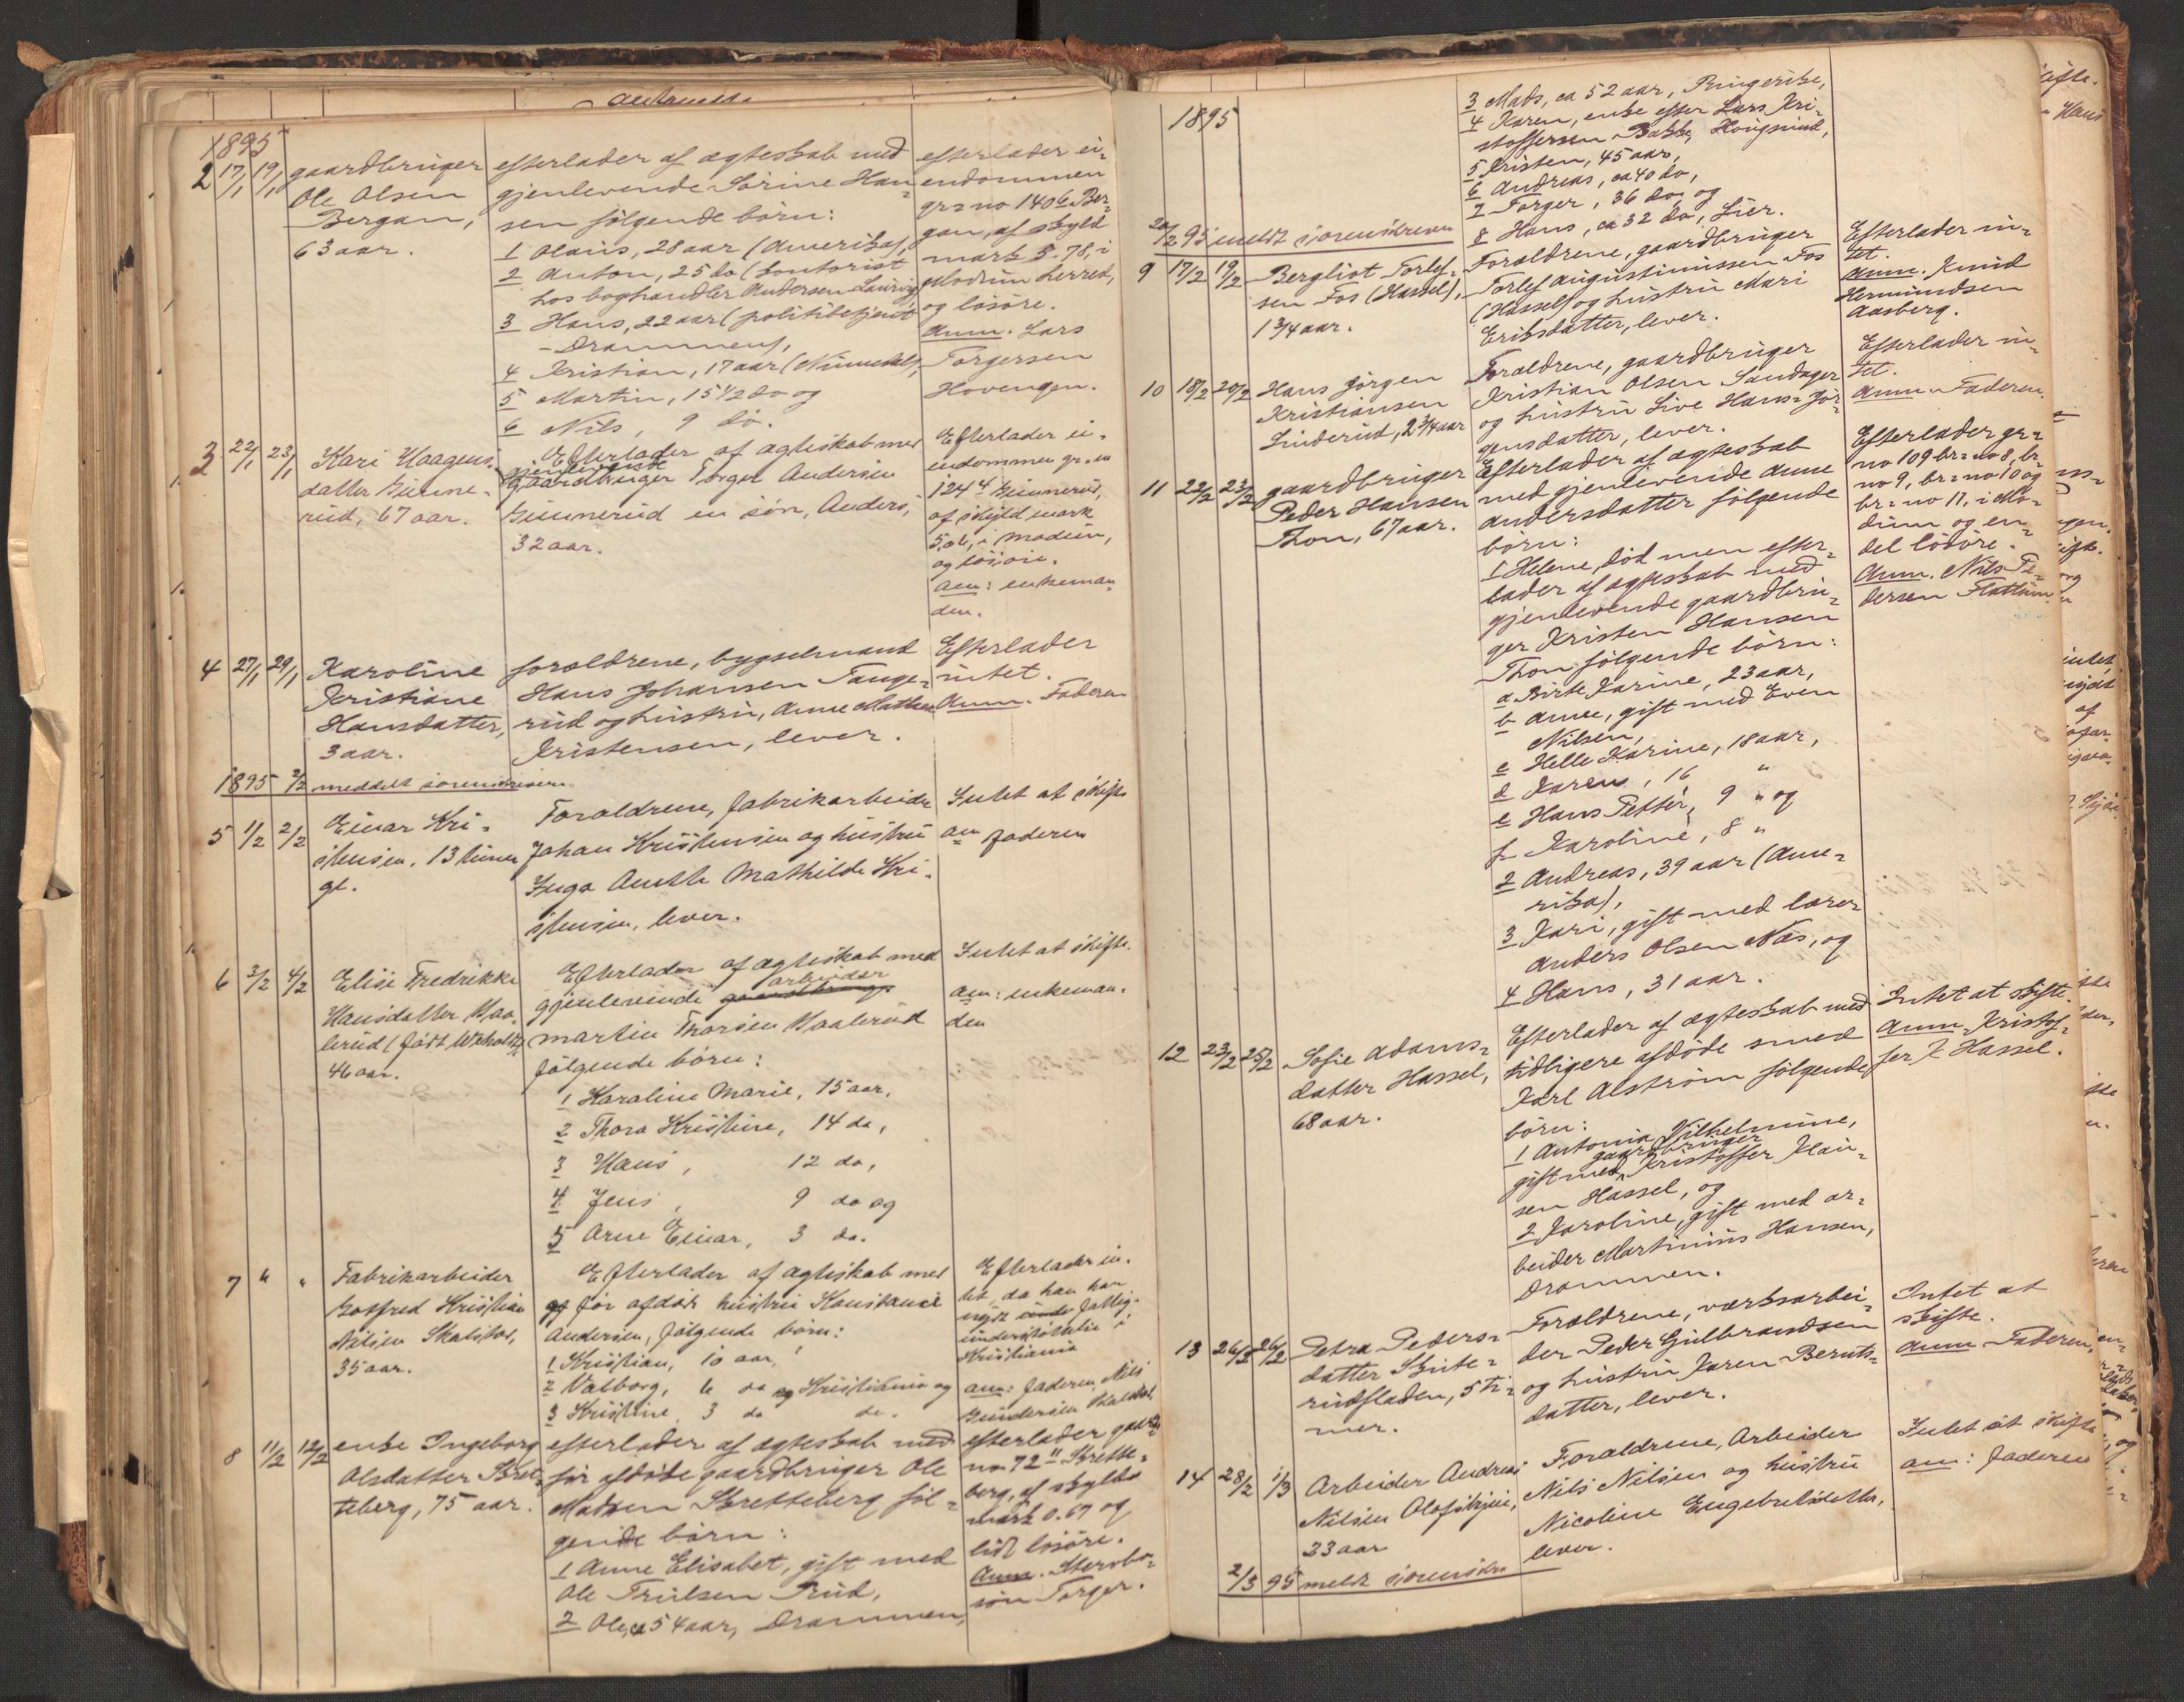 1895
2 17/1 19/1 gaardbruger
Ole Olsen
Bergan,
63 aar.
efterlader af ægteskab med
gjenlevende Sørine Han-
sen følgende børn:
1 Olaus, 28 aar (Amerika),
2 Anton, 25 do (kontorist
hos boghandler Andersen Laurvig
3 Hans, 22 aar (politibetjent
Drammen),
4 Kristian, 17 aar (Numedal),
5 Martin, 15 1/2 do og
6 Nils, 9 do.
efterlader ei-
endommen
gr=no 140 6 Ber-
gan, af skyld
mark 5.78, i
Modum herred,
og løsøre.
Anm. Lars
Torgersen
Hovengen.
3 22/1 23/1 Kari Haagens-
datter Gunne-
rud, 67 aar.
Efterlader af ægteskab med
gjenlevende
gaardbruger Torger Andersen
Gunnerud en søn, Anders,
32 aar.
Efterlader ei-
endommen gr.n
124 4 Gunnerud,
af skyld mark
5,06, i Modum,
og løsøre.
anm: enkeman-
den.
4 27/1 29/1 Karoline
Kristiane
Hansdatter,
3 aar.
forældrene, bygselmand
Hans Johansen Tange-
rud og hustru, Anne Mathea
Kristensen, lever.
Efterlader
intet.
Anm. Faderen
1895 2/2 meddelt sorenskriveren
5 1/2 2/2 Einar Kri-
stensen, 13 timer
gl.
Forældrene, fabrikarbeider
Johan Kristensen og hustru
Inga Anette Mathilde Kri-
stensen, lever.
Intet at skifte
an faderen
6 3/2 4/2 Elise Fredrikke
Hansdatter Haa-
lerud (født
46 aar.
Efterlader af ægteskab med
arbeider
gjenlevende gaardbruger
Martin Thorsen Haalerud
følgende børn:
1 Karoline Marie, 15 aar,
2 Thora Kristine, 14 do,
3 Hans, 12 do,
4 Jens, 9 do og
5 Arne Einar, 3 do.
Intet at skifte.
anm: enkeman-
den
7 " " Fabrikarbeider
Gotfred Kristian
Nilsen Skalstad,
35 aar.
Efterlader af ægteskab med
før afdød hustru Konstance
Andersen, følgende børn:
1 Kristian, 10 aar,
2 Valborg, 6 do og Kristiania og
3 Kristine, 3 do do.
Efterlader in-
tet, da han har
nydt fattig-
understøttelse i
Kristiania
anm: faderen Nils
Gundersen Skalstad
8 11/2 12/2 enke Ingeborg
Olsdatter Skret-
teberg, 75 aar.
efterlader af ægteskab med
før afdøde gaardbruger Ole
Madsen Skretteberg føl-
gende børn:
1 Anne Elisabet, gift med
Ole Trulsen Rud,
2 Ole, ca 54 aar, Drammen,
efterlader gaards
no 72 11 Skrette-
berg, af skyld
mark 0.67 og
lidt løsøre.
Anm. Stervbo-
søn Torger.
1895
3 Mads, ca 52 aar, Ringerike,
4 Karen, enke efter Lars Kri-
stoffersen Bakke, Hougsund,
5 Kristen, 45 aar,
6 Andreas, ca 40 do,
7 Torger, 36 do, og
8 Hans, ca 32 do, Lier.
20/2 95 meldt sorenskriveren
9 17/2 19/2 Bergliot Torlef-
sen Fos (Hassel),
1 3/4 aar.
Forældrene, gaardbruger
Torlef Augustinussen Fos
(Hassel) og hustru Mari
Eriksdatter, lever.
Efterlader in-
tet.
Anm. Knud
Hermundsen
Aasberg.
10 18/2 20/2 Hans Jørgen
Kristiansen
Linderud, 2 3/4 aar
Forældrene, gaardbruger
Kristian Olsen Sandager
og hustru Live Hans-Jør-
gensdatter, lever.
Efterlader in-
tet.
Anm. Faderen.
11 22/2 23/2 gaardbruger
Peder Hansen
Thon, 67 aar.
Efterlader af ægteskab
med gjenlevende Anne
Andersdatter følgende
børn:
1 Helene, død men efter-
lader af ægteskab med
gjenlevende gaardbru-
ger Kristen Hansen
Thon følgende børn:
a Birte Karine, 23 aar,
b Anne, gift med Even
Nilsen,
c Helle Karine, 18 aar,
d Karen, 16 "
e Hans Petter, 9 " og
f Karoline, 8 "
2 Andreas, 39 aar (Ame-
rika),
3 Kari, gift med lærer
Anders Olsen Næs, og
4 Hans, 31 aar.
Efterlader gr-
no 109 br=no 8, br-
no 9, br=no 10 og
br=no 11, i Mo-
dum og en-
del løsøre.
Anm. Nils Pe-
dersen Flattum
12 23/2 25/2 Sofie Adams-
datter Hassel,
68 aar.
Efterlader af ægteskab med
tidligere afdøde smed
Karl Alstrøm følgende
børn:
1 Antonia Vilhelmine,
gaardbruger
gift med Kristoffer Klau-
sen Hassel, og
2 Karoline, gift med ar-
beider Martinius Hansen,
Drammen.
Intet at skifte.
Anm. Kristof-
fer K. Hassel.
13 26/2 26/2 Petra Peders-
datter Skute-
rudfladen, 5 ti-
mer.
Forældrene, værksarbei-
der Peder Gulbrandsen
og hustru Karen Bernts-
datter, lever.
Intet at
skifte.
Anm Faderen.
14 28/2 1/3 Arbeider Andreas
Nilsen Olafsbyen,
23 aar
Forældrene, Arbeider
Nils Nilsen og hustru
Nicoline Engebretsdatter,
lever.
Intet at skifte
anm: faderen
2/3 95 meldt sorenskr